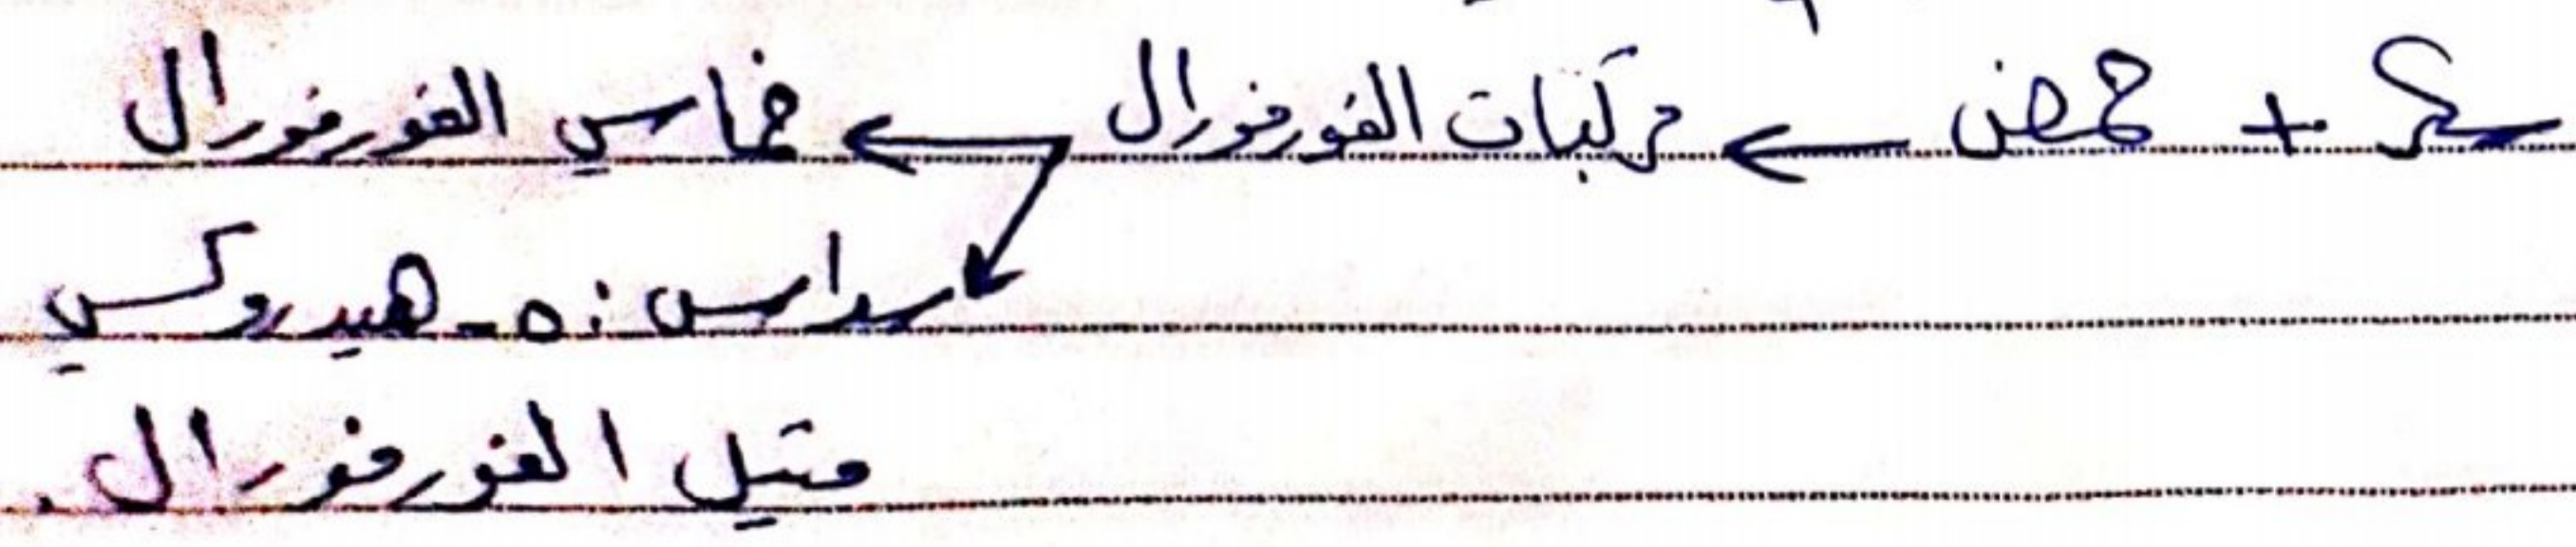 سكر + حمض ← مركبات الفورفورال ← خماسي الفورفورال
سداسي : ٥ - هيدروكسي
متيل الفورفورال .